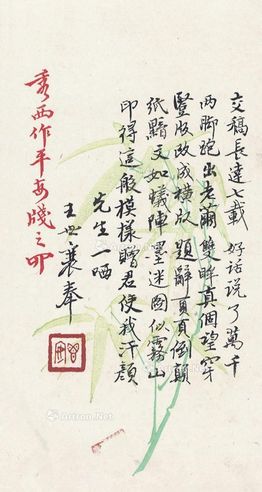 交稿長達七載 好話說了萬千
兩脚跑出老繭雙眸真個望穿
豎版改成橫版 題辭頁頁倒顛
紙黯文如蟻陣墨迷圖似霧山
印得這般模樣贈君使我汗顏
先生一哂
王世襄奉
西作平安牋之
Artron.Net